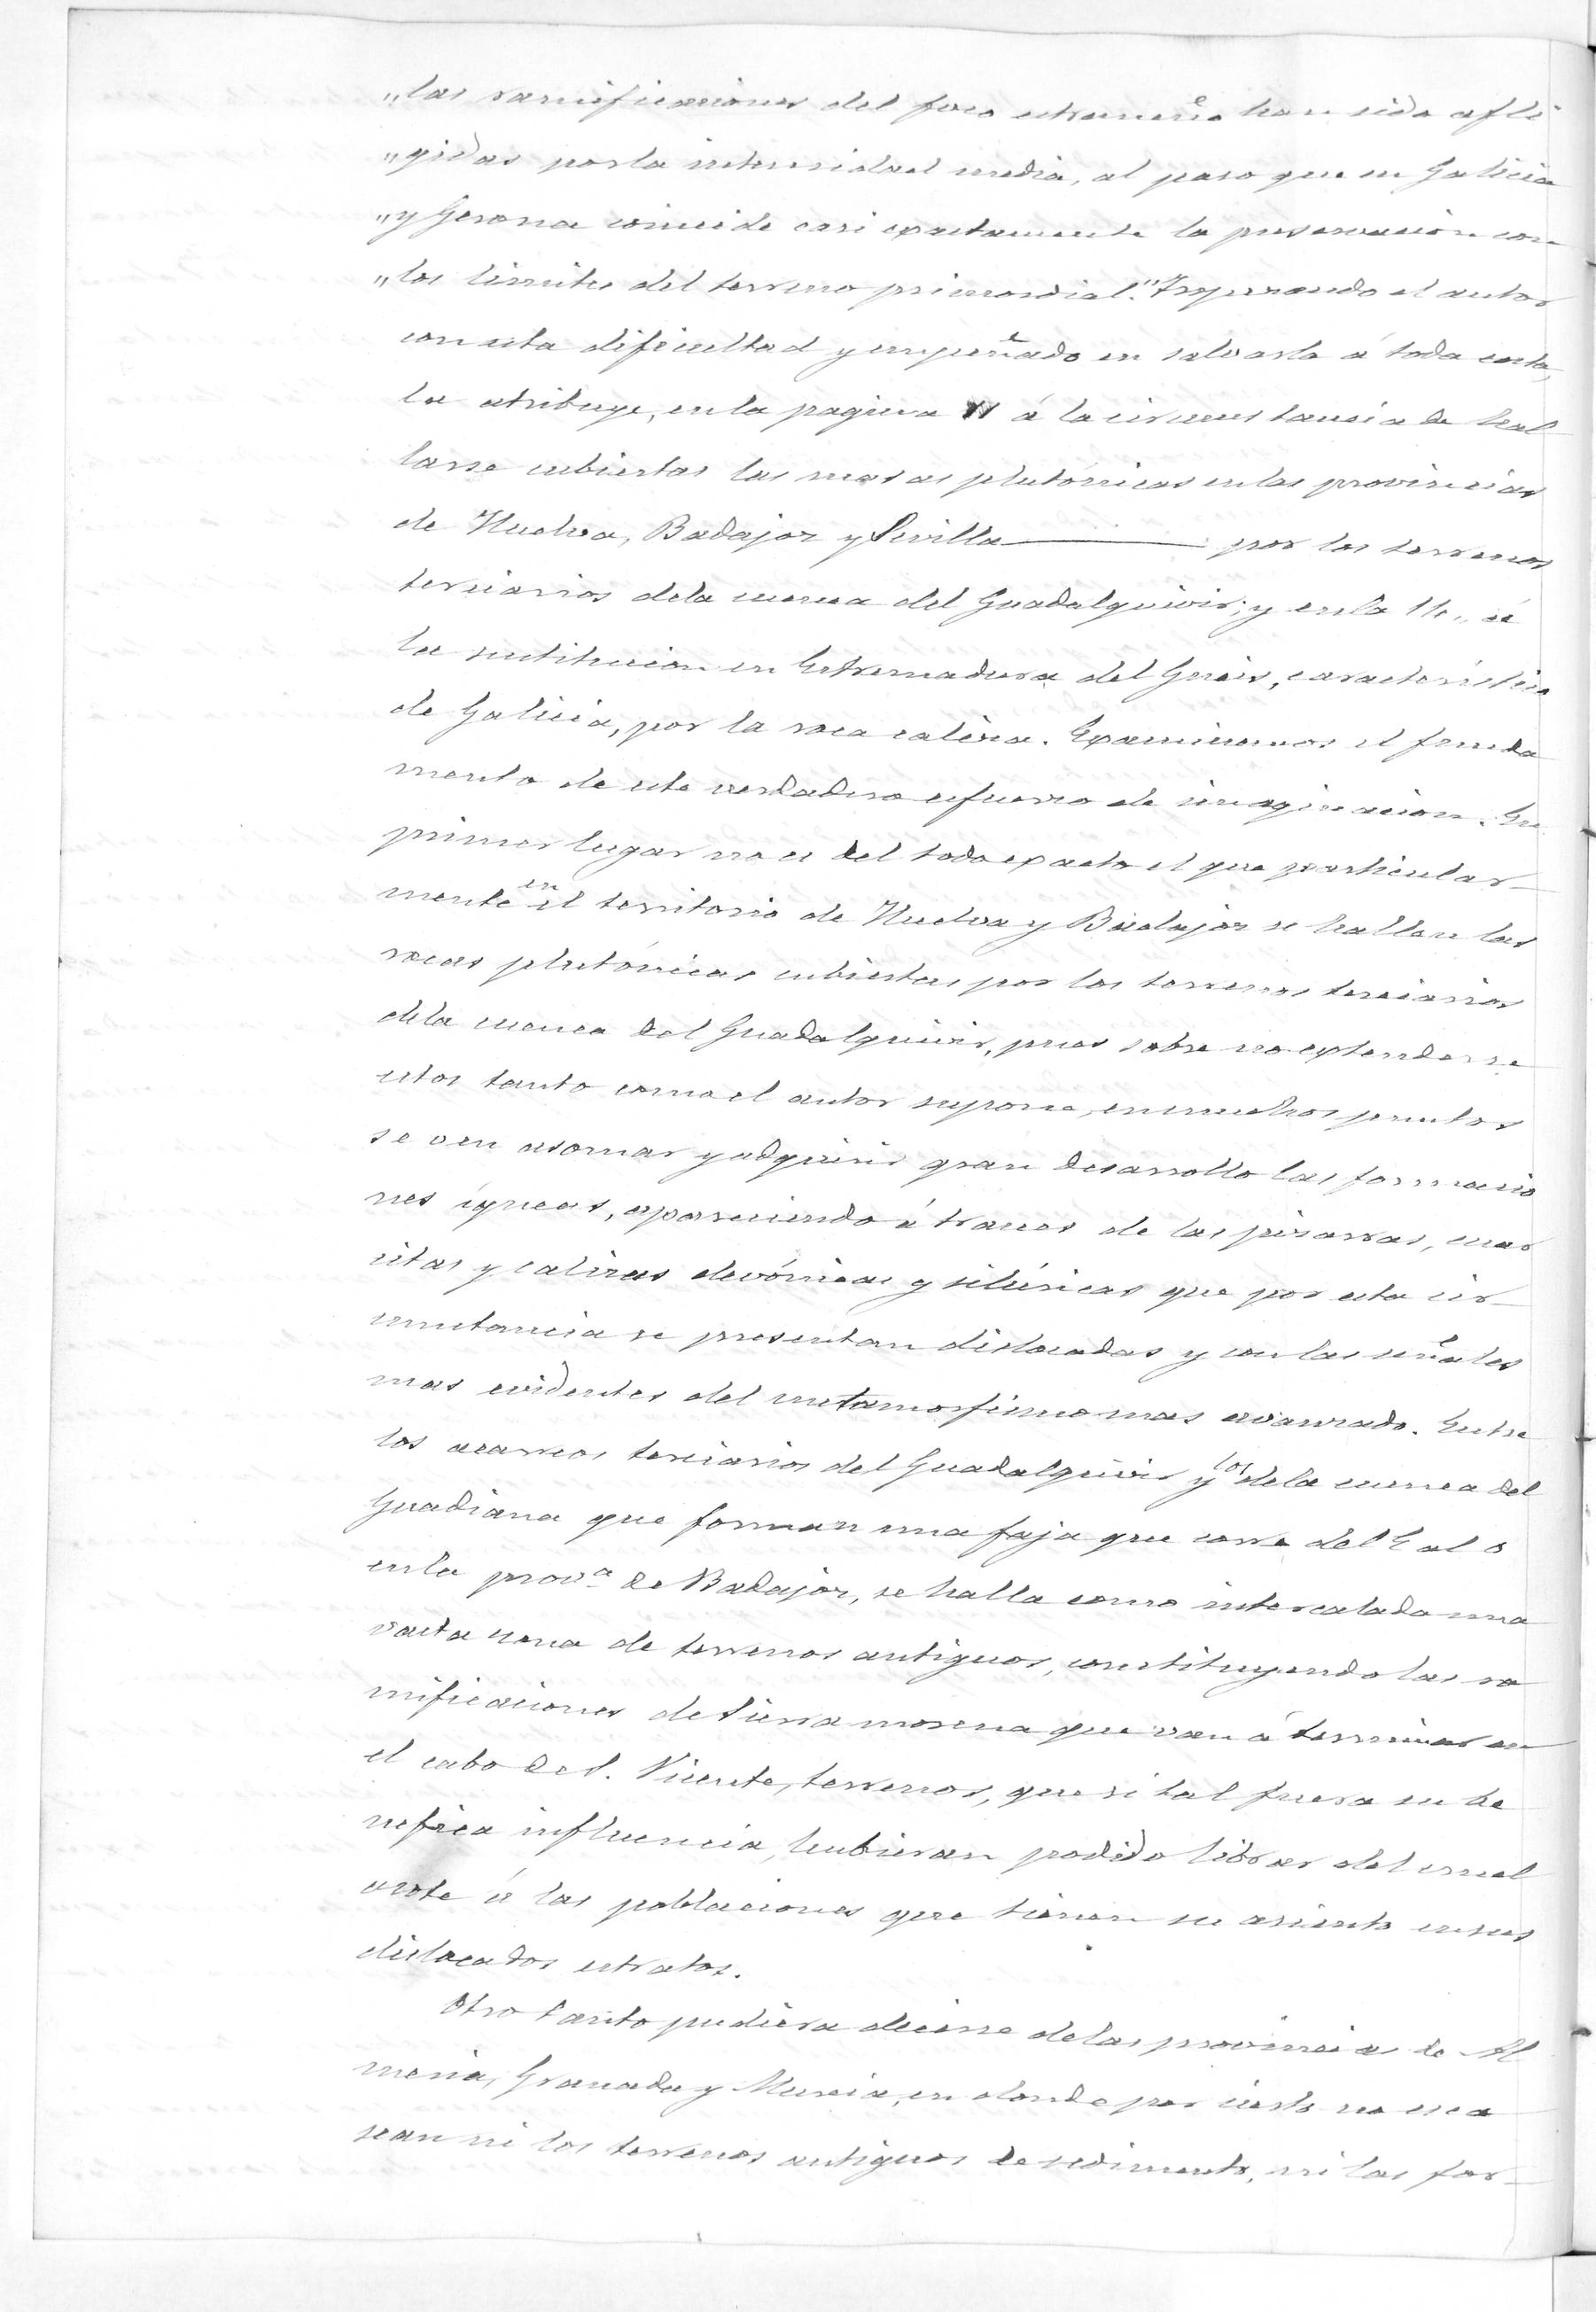 „las ramificaciones del foco estremeño han sido afli
„gidas por la intensidad media, al paso que en Galicia
„y Gerona coincide casi exactamente la preservacion con
„los limites del terreno primordial." Tropezando el autor
con esta dificultad y empeñado en salvarla á toda costa,
la atribuye, en la pagina á la circunstancia de hal
larse cubiertas las masas plutónicas en las provincias
de Huelva, Badajoz y Sevilla ——— por los terrenos
terciarios dela cuenca del Guadalquivir; y en la 11„ á
la sustitucion en Estremadura del Gneis, caracteristico
de Galicia, por la roca caliza. Examinemos el funda
mento de este verdadero esfuerzo de imaginacion. En
primer lugar no es del todo exacto el que particular-
mente en el territorio de Huelva y Badajoz se hallen las
rocas plutónicas cubiertas por los terrenos terciarios
dela cuenca del Guadalquivir, pues sobre no extenderse
estos tanto como el autor supone, en muchos puntos
se ven asomar y adquirir gran desarrollo las formacio
nes igneas, apareciendo á traves de las pizarras, cuar
citas y calizas devónicas y silúricas que por esta cir-
cunstancia se presentan dislocadas y con las señales
mas evidentes del metamorfismo mas avanzado. Entre
los acarreos terciarios del Guadalquivir y los dela cuenca del
Guadiana que forman una faja que corre del E al O
en la prov.ª de Badajoz, se halla como intercalada una
vasta zona de terrenos antiguos, constituyendo las ra
mificaciones de Sierra morena que van á terminar en
el cabo de S. Vicente, terrenos, que si tal fuera su be
nefica influencia, hubieran podido librar del cruel
azote á las poblaciones que tienen su asiento en sus
dislocados estratos.
Otro tanto pudiera decirse delas provincias de Al
meria, Granada y Murcia, en donde por cierto no esca
sean ni los terrenos antiguos de sedimento, ni las for-